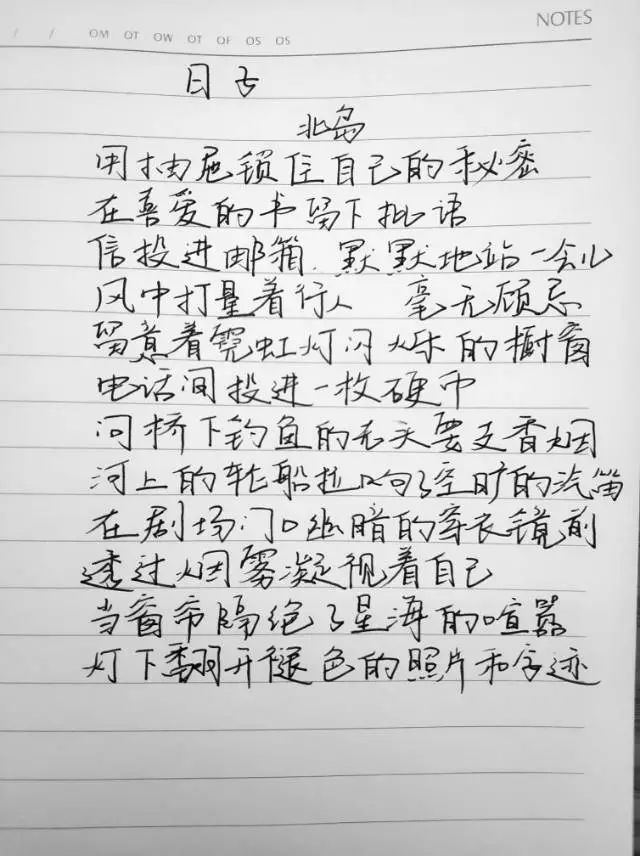 NOTES
/ / OM OT OW OT OF OS OS
日子
北岛
用抽屉锁住自己的秘密
在喜爱的书留下批语
信投进邮箱.默默地站一会儿
风中打量着行人 毫无顾忌
留意着霓虹灯闪烁的橱窗
电话间投进一枚硬币
问桥下钓鱼的老头要支香烟
河上的轮船拉响了空旷的汽笛
在剧场门口幽暗的穿衣镜前
透过烟雾凝视着自己
当窗帘隔绝了星海的喧嚣
灯下翻开褪色的照片和字迹